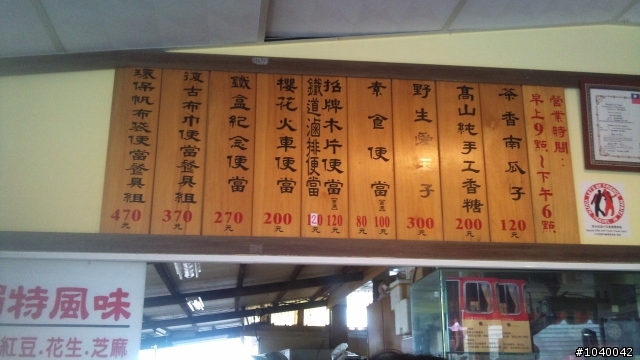 營業時間：
早上9點～下午6點
茶香南瓜子
120元
高山純手工香糖
200元
野生愛玉子
300元
素食便當
80元 100元
招牌木片便當
120元
鐵道滷排便當
環保帆布袋便當餐具組
470元
復古布巾便當餐具組
370元
鐵盒紀念便當
270元
櫻花火車便當
200元
獨特風味
紅豆.花生.芝麻
#1040042